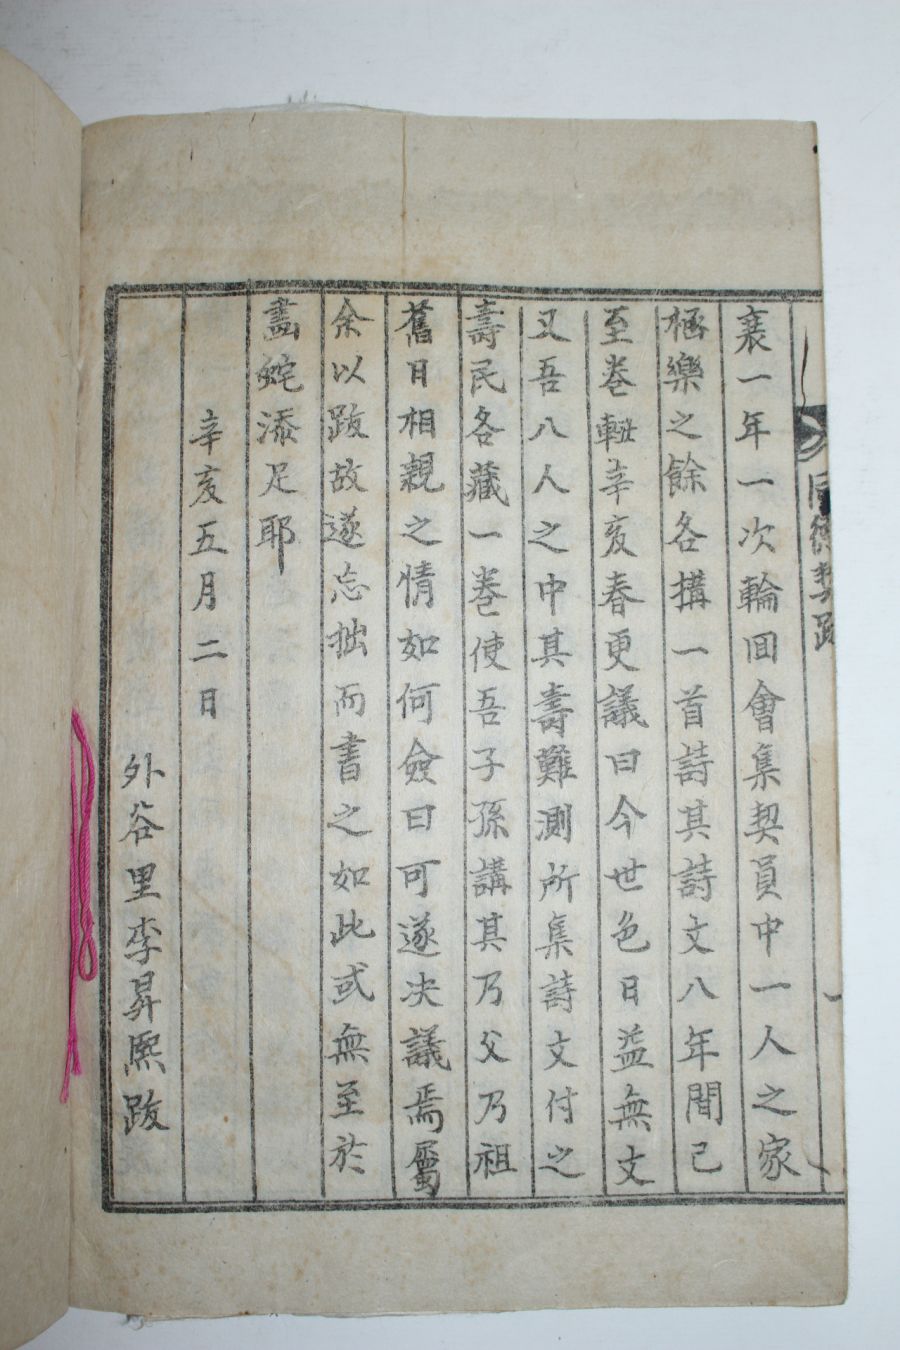 同德契跋
襄一年一次輪回會集契員中一人之家
極樂之餘各搆一首詩其詩文八年間已
至卷軸辛亥春更議曰今世色日益無文
又吾八人之中其壽難測所集詩文付之
壽民各藏一卷使吾子孫講其乃父乃祖
舊日相親之情如何僉曰可遂决議焉屬
余以跋故遂忘拙而書之如此或無至於
畵蛇添足耶
辛亥五月二日
外谷里李昇熙跋